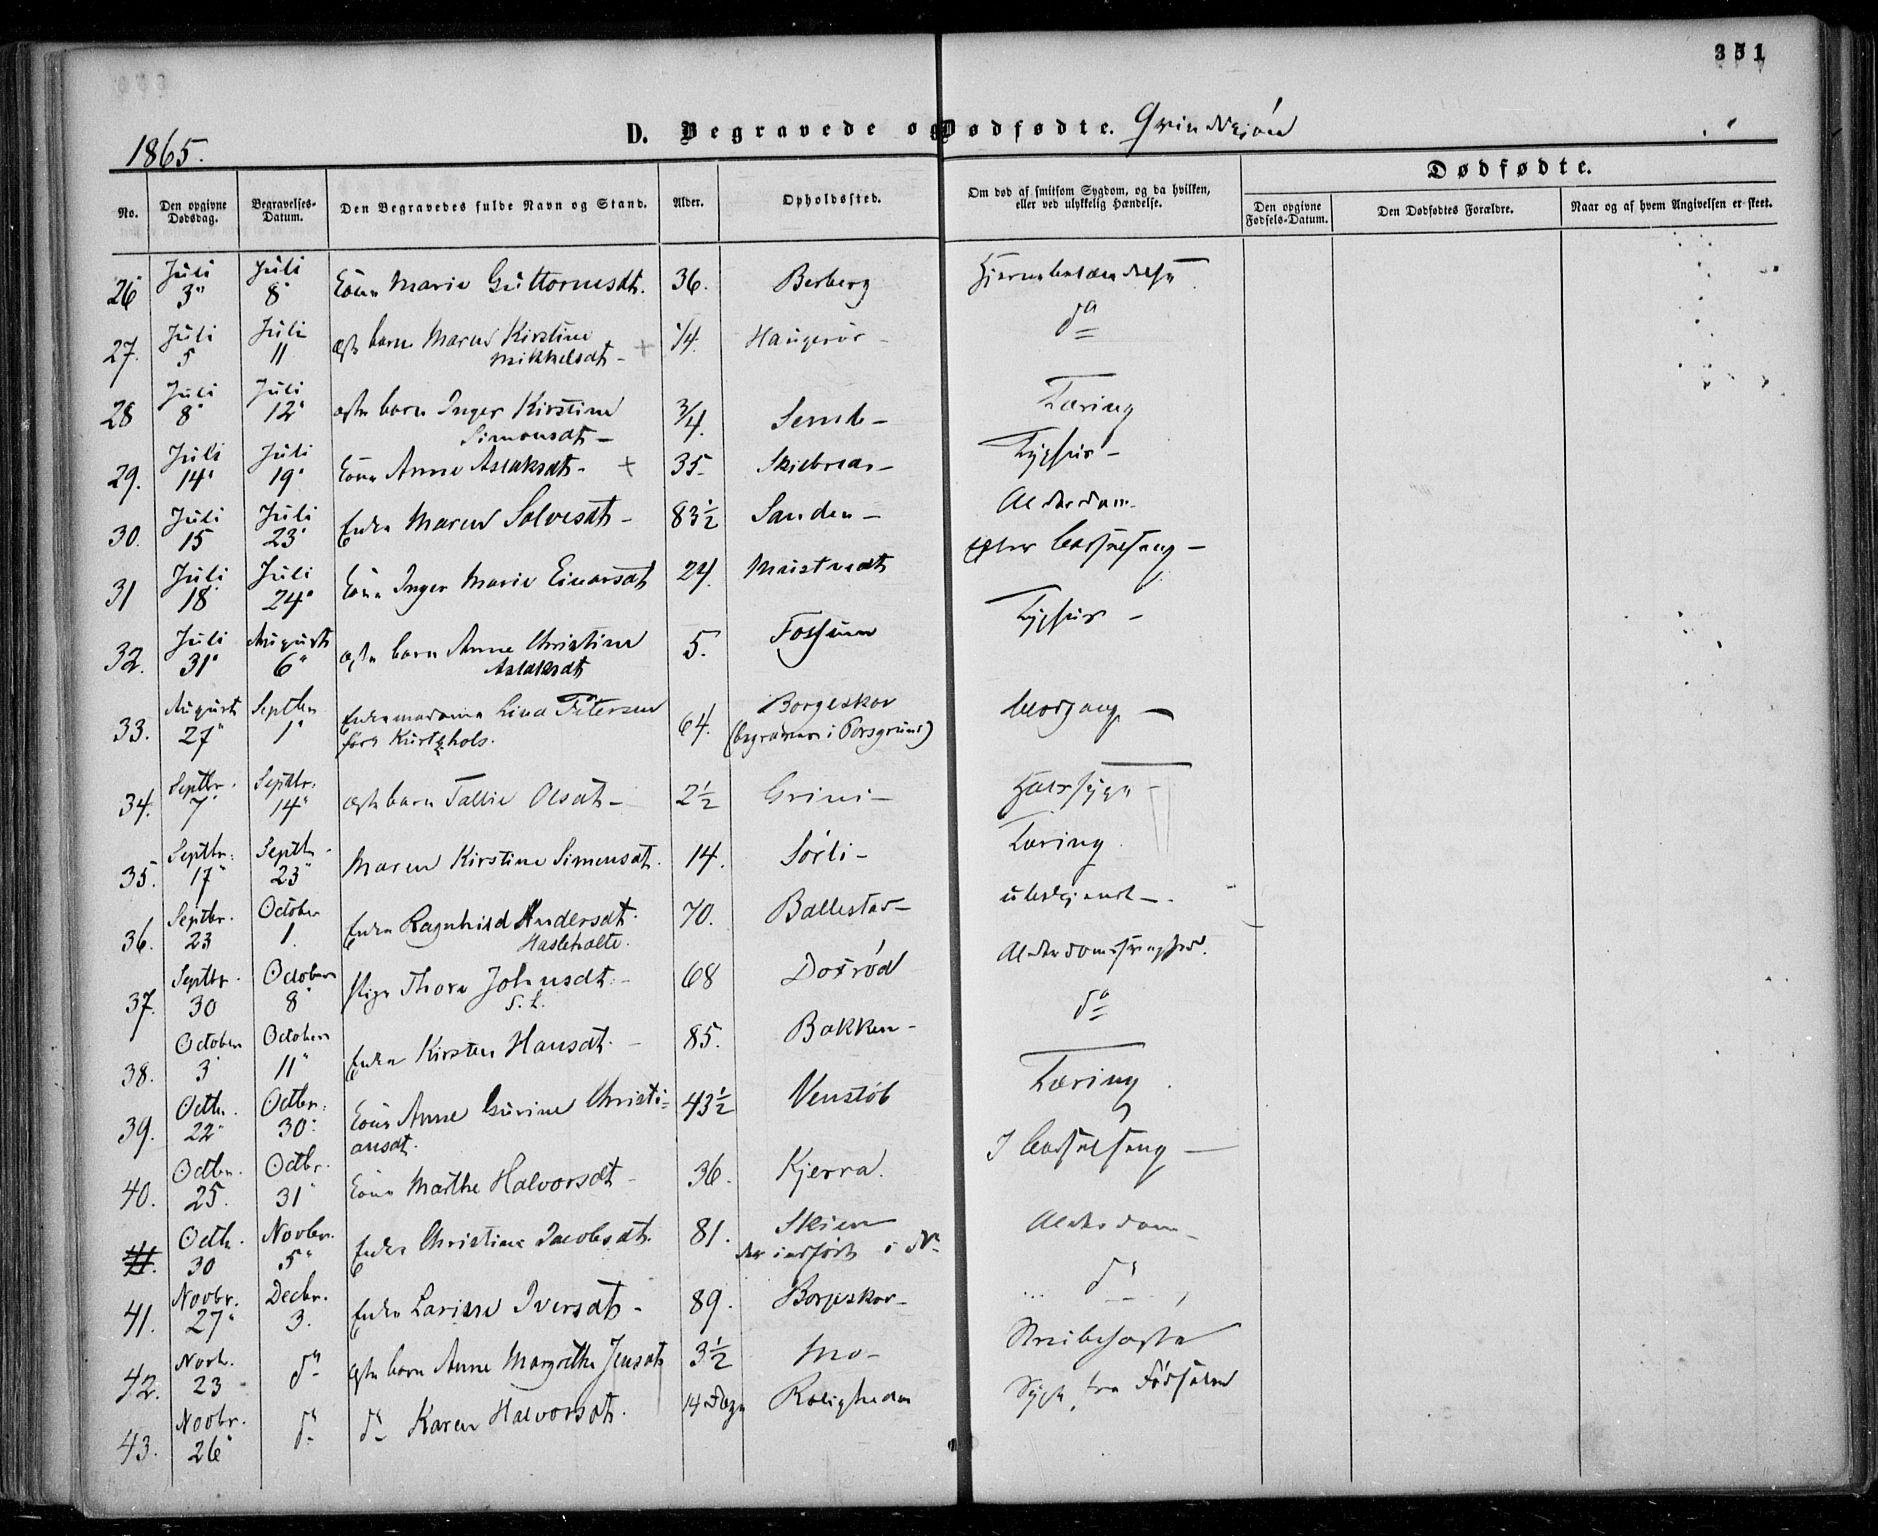 351
D. Begravede og Dødfødte. Qvindekjön
1865.
Dødfødte.
No. Den opgivne Dødsdag. Begravelses-Datum. Den Begravedes fulde Navn og Stand. Alder. Opholdssted. Om død af smitsom Sygdom, og da hvilken, eller ved ulykkelig Hændelse. Den opgivne Fødsels-Datum. Den Dødfødtes Forældre. Naar og af hvem Angivelsen er skeet.
26 Juli 3" Juli 8" Kone Marie Guttormsdt. 36. Berberg
27. Juli 5 Juli 11 ægte barn Maren Kirstine Mikkelsdt - + 1/4. Haugerör - do
28 Juli 8" Juli 12" ægte barn Inger Kirstine Simonsdt - 3/4. Semb - Tæring
29. Juli 14" Juli 19" Kone Anne Aslaksdt - + 35. Skilbred - Typhus -
30. Juli 15 Juli 23" Enke Maren Solvesdt - 83½ Sanden - Alderdom.
31 Juli 18 Juli 24" Kone Inger Marie Einarsdt 24. Mustvedt efter Barselseng -
32. Juli 31" August 6" ægte barn Anne Christine Aslaksdt 5. Fossum Typhus -
33. August 27" Septbr 1" Enkemadame Lina Petersen født Kurtzhols. 64. Borgeskov (begraven i Porsgrund)
34. Septbr. 7" Septbr. 14" ægte barn Tallie Olsdt - 2½ Grini - Halssyge -
35. Septbr. 17" Septbr 23" Maren Kirstine Simensdt. 14. Sörli - Tæring.
36. Septbr. 23 October 1. Enke Ragnhild Andersdt. Hasleholte. 70. Ballestad - ubekjendt -.
37. Septbr. 30 October 8" Pige Thore Johnsdt. - S. L. 68 Dosröd Alderdomssvaghed.
38. October 3 October 11" Enke Kirsten Hansdt. - 85. Bakken - do
39. Octbr. 22" Octbr. 30" Kone Anne Gurine Christiansdt. 43½ Venstöb Tæring.
40. Octbr. 25. Octbr. 31" Kone Marthe Halvorsdt - 36. Kjerra. I Barselseng -
41. Octbr. 30 Novbr. 5" Enke Christine Jacobsdt. 81. Skien der indfört i No Alderdom
41. Novbr. 27" Decbr. 3. Enke Larisse Iversdt - 89. Borgeskov - do
42. Novb. 23 do ægte barn Anne Margrethe Jensdt 3½ Mo - Strubehoste
43. Novbr. 26" do do Karen Halvorsdt. 14 Dage Roligheden Syg fra Födselen